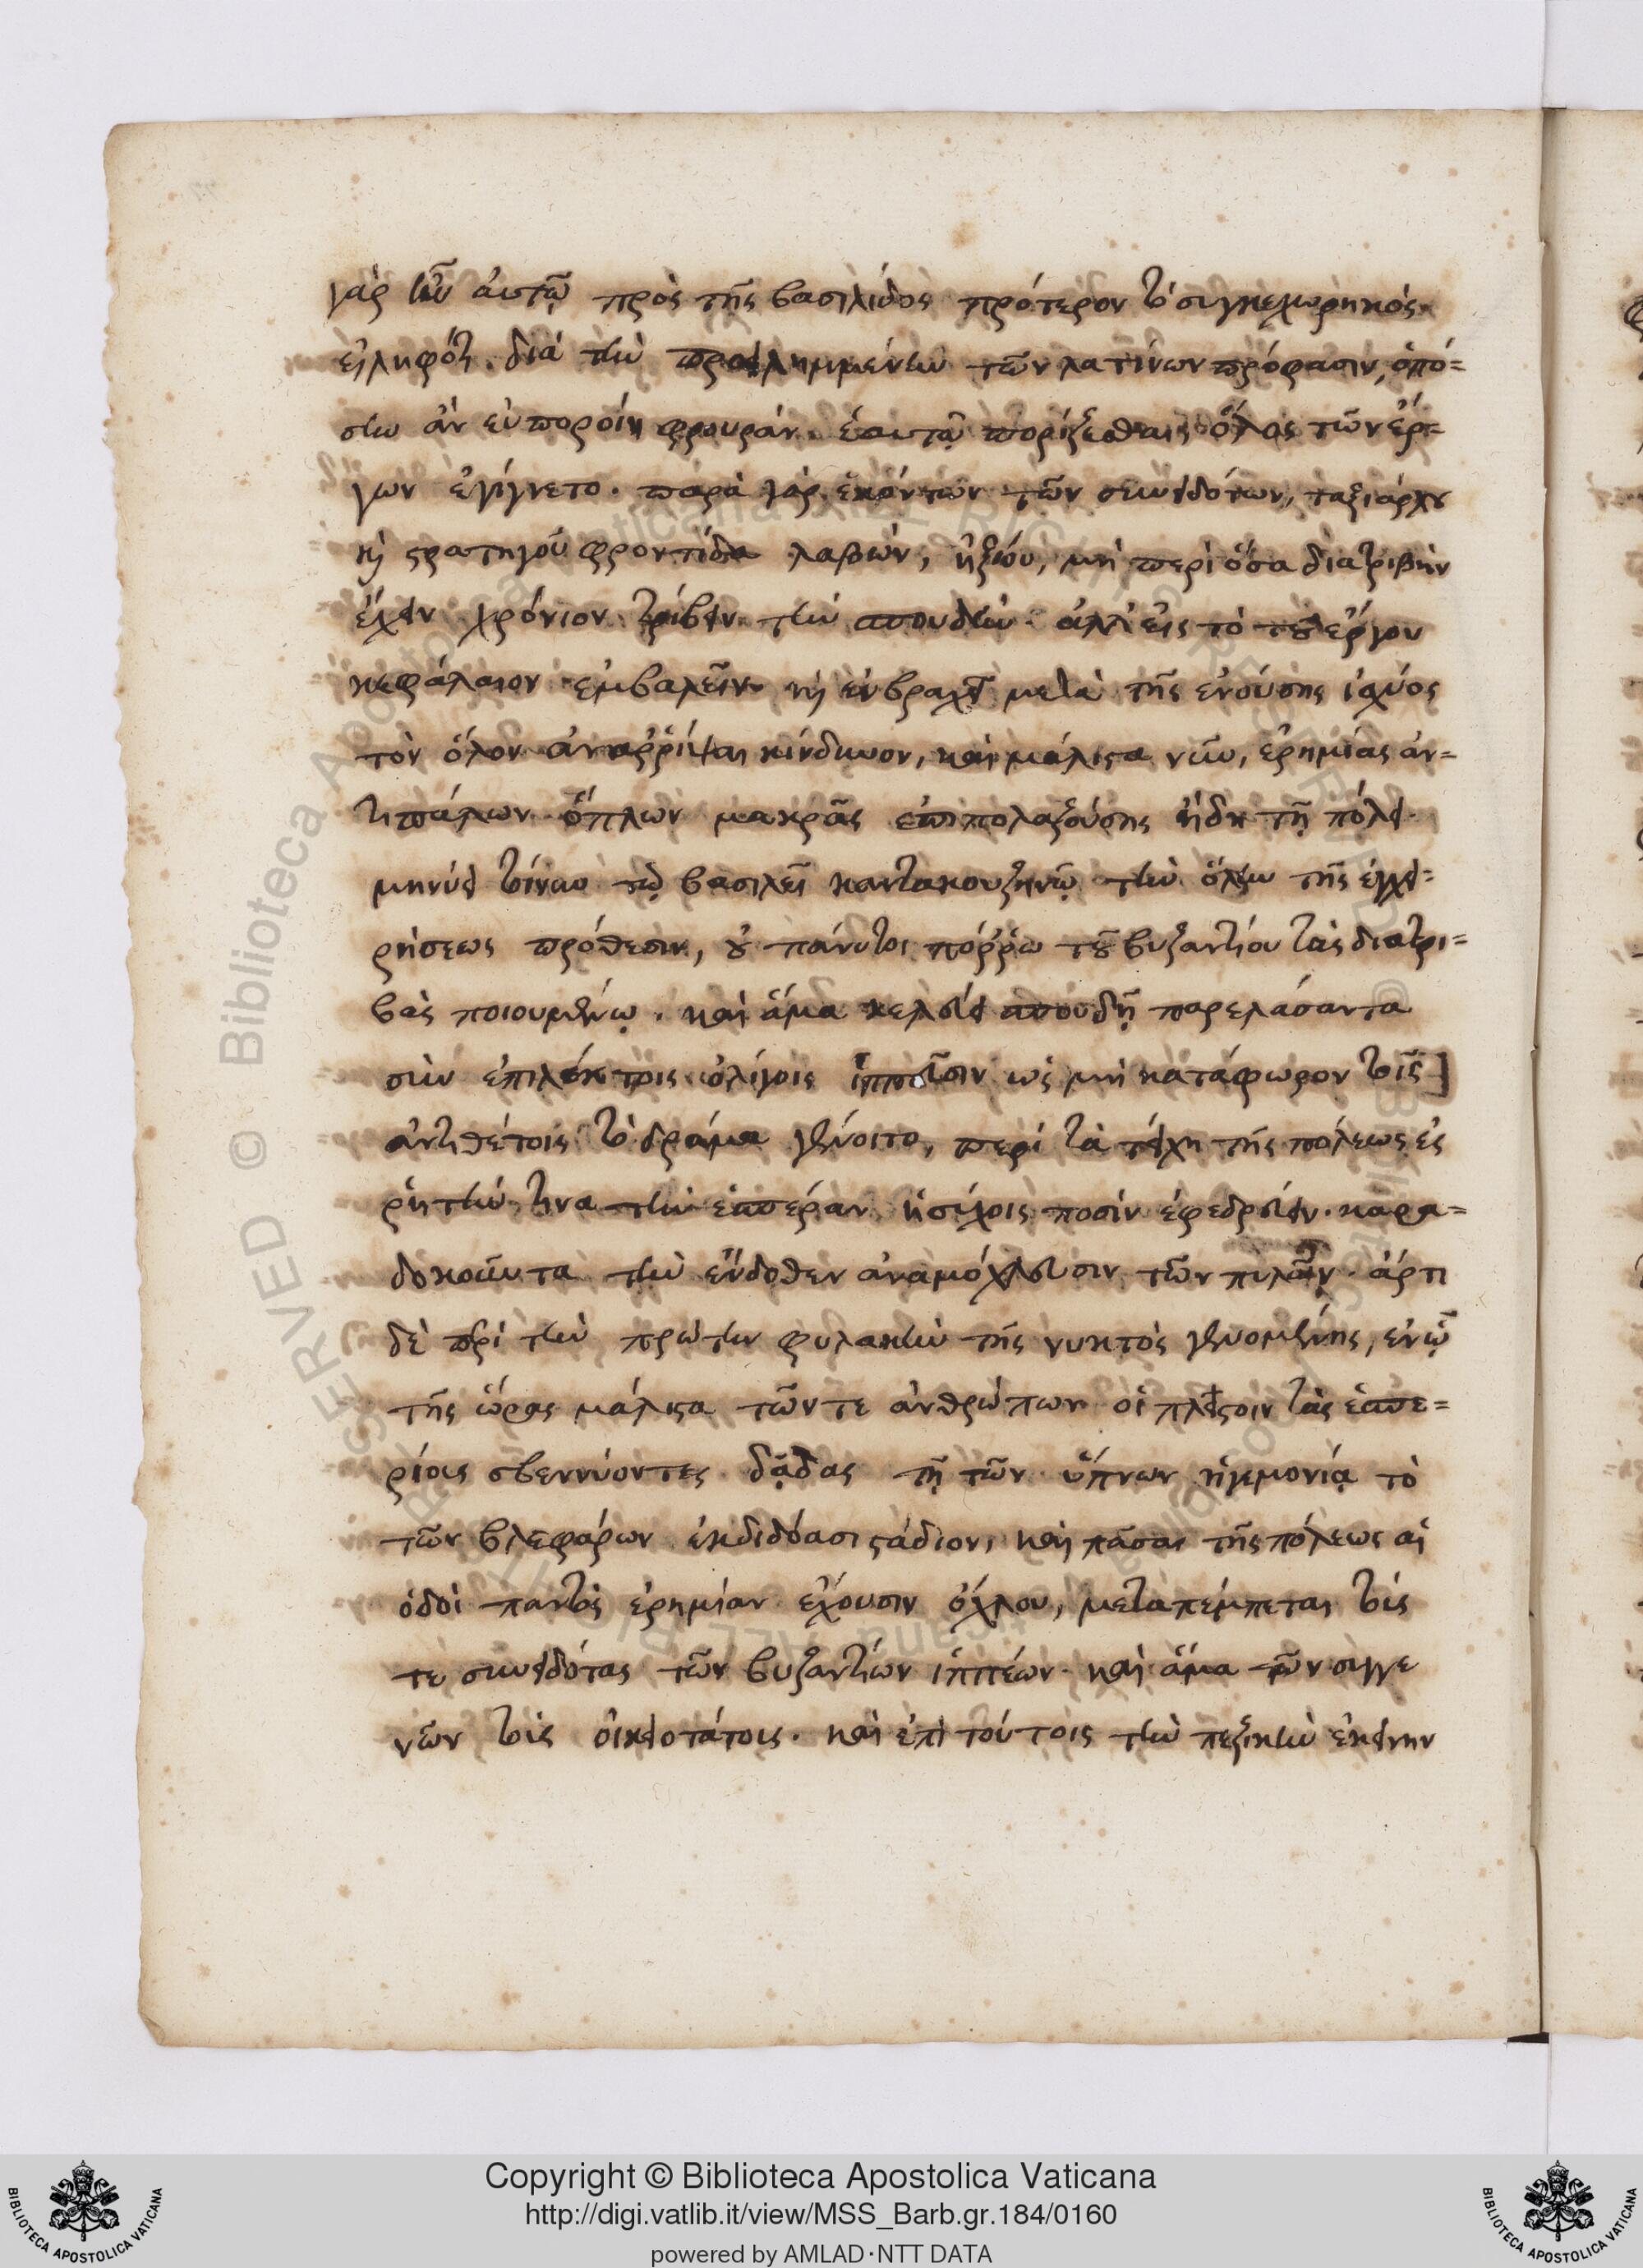 γὰρ ἦν αὐτῷ πρὸς τῆς βασιλίδος πρότερον τὸ συγκεχωρηκὸς
εἰληφότι. διὰ τὴν προειλημμένην τῶν λατίνων πρόφασιν, ὁπό=
σην ἂν εὐποροίη φρουράν. ἑαυτῷ πορίζεσθαι, ὅλος τῶν ἔρ=
γων ἐγίγνετο. παρὰ γὰρ ἑκόντων τῶν συνειδότων, ταξιάρχου
καὶ στρατηγοῦ φροντίδα λαβὼν, ἠξίου, μὴ περὶ ὅσα διατριβὴν
ἔχειν χρόνιον τρίβειν τὴν σπουδὴν. ἀλλ' εἰς τὸ τοῦ ἔργου
κεφάλαιον ἐμβαλεῖν. καὶ ἐν βραχεῖ μετὰ τῆς ἐνούσης ἰσχύος
τὸν ὅλον ἀναρρῖψαι κίνδυνον, καὶ μάλιστα νῦν, ἐρημίας ἀν=
τιπάλων ὅπλων μακρᾶς ἐπιπολαζούσης ἤδη τῇ πόλει.
μηνύει τοίνυν τῷ βασιλεῖ καντακουζηνῷ τὴν ὅλην τῆς ἐγχει=
ρήσεως πρόθεσιν, οὐ πάνυ τοι πόρρω τοῦ βυζαντίου τὰς διατρι=
βὰς ποιουμένῳ. καὶ ἅμα κελεύει σπουδῇ παρελάσαντα
σὺν ἐπιλέκτοις ὀλίγοις ἱππεῦσιν ὡς μὴ κατάφωρον τοῖς
ἀντιθέτοις τὸ δράμα γένοιτο, περὶ τὰ τείχη τῆς πόλεως ἐς
ῥητήν τινα τὴν ἑσπέραν ἡσύχοις ποσὶν ἐφεδρεύειν. καρα=
δοκοῦντα τὴν ἔνδοθεν ἀναμόχλευσιν τῶν πυλῶν. ἄρτι
δὲ περὶ τὴν πρώτην φυλακὴν τῆς νυκτὸς γενομένης, ἐν ᾧ
τῆς ὥρας μάλιστα τῶν τε ἀνθρώπων οἱ πλεῖστοι τὰς ἑσπε=
ρίους σβεννύοντες δᾷδας τῇ τῶν ὕπνων ἡγεμονίᾳ τὸ
τῶν βλεφάρων ἐκδιδόασι στάδιον, καὶ πᾶσαι τῆς πόλεως αἱ
ὁδοὶ παντὸς ἐρημίαν ἔχουσιν ὄχλου, μεταπέμπεται τούς
τε συνειδότας τῶν βυζαντίων ἱππέων. καὶ ἅμα τῶν συγγε
νῶν τοὺς οἰκειοτάτους. καὶ ἐπὶ τούτοις τὴν πεζικὴν ἐκείνην
Copyright © Biblioteca Apostolica Vaticana
http://digi.vatlib.it/view/MSS_Barb.gr.184/0160
powered by AMLAD·NTT DATA